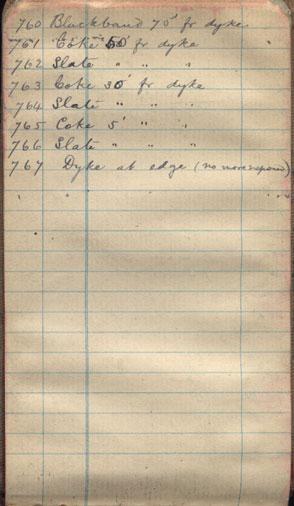 760 Blackband 70' fr dyke
761 Coke 50' fr dyke
762 Slate " " "
763 Coke 30' fr dyke
764 Slate " " "
765 Coke 5' " "
766 Slate " " "
767 Dyke at edge (no more exposed)